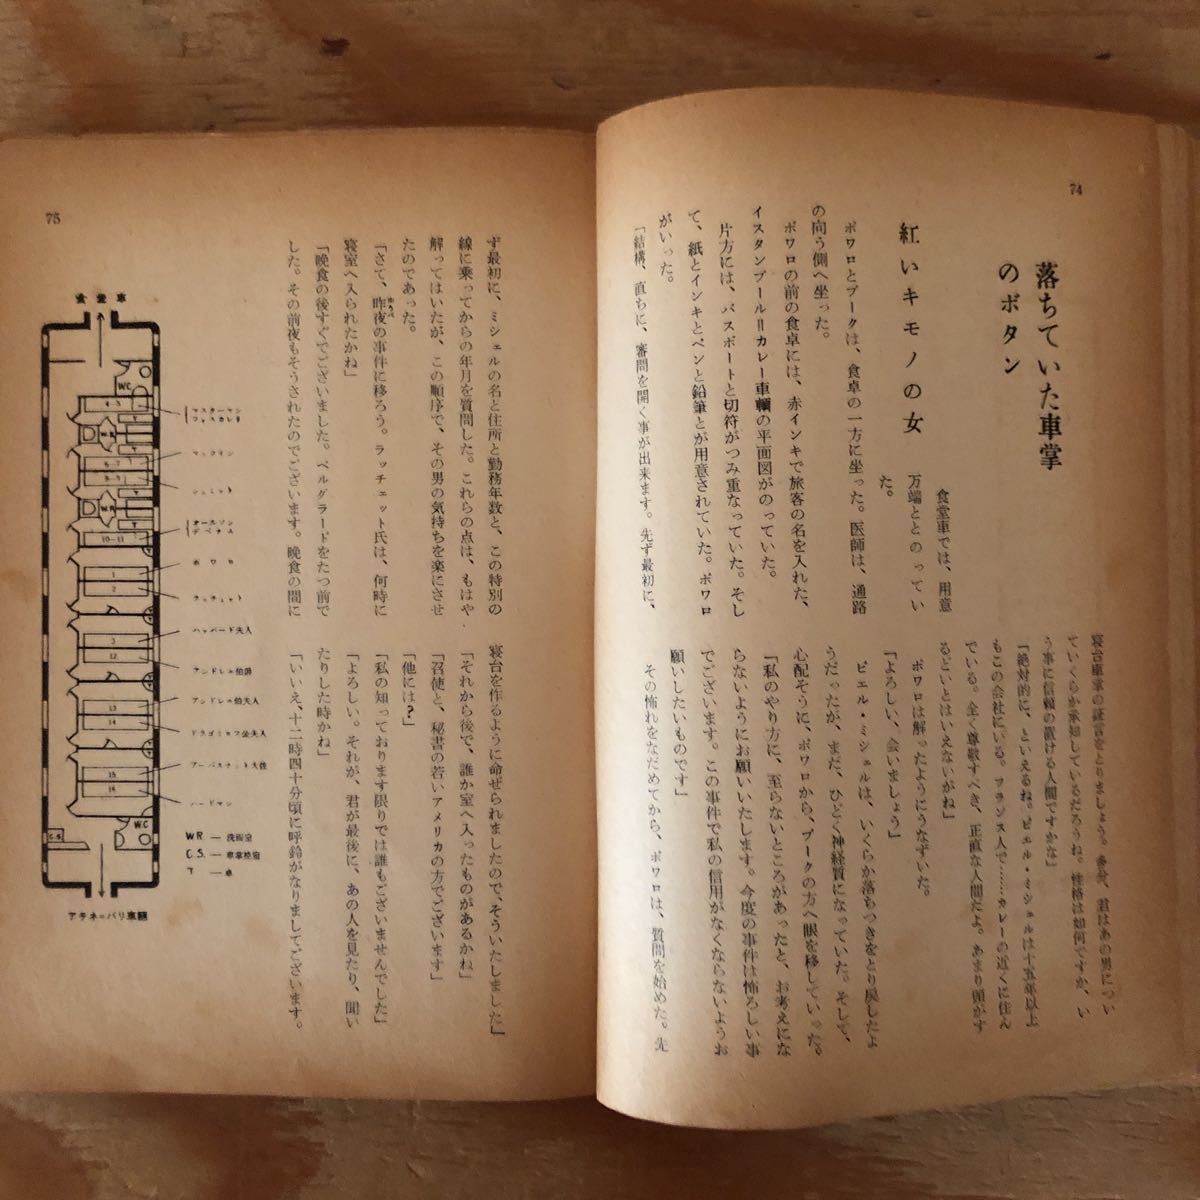 74
落ちていた車掌
のボタン
紅いキモノの女
食堂車では、用意
万端ととのってい
た。
ポワロとブークは、食卓の一方に坐った。医師は、通路
の向う側へ坐った。
ポワロの前の食卓には、赤インキで旅客の名を入れた、
イスタンブール=カレー車輛の平面図がのっていた。
片方には、パスポートと切符がつみ重なっていた。そし
て、紙とインキとペンと鉛筆とが用意されていた。ポワロ
がいった。
「結構、直ちに、審問を開く事が出来ます。先ず最初に、
寝台車掌の証言をとりましょう。多分、君はあの男につい
ていくらか承知しているだろうね。性格は如何ですか、い
う事に信頼の置ける人間ですかな」
「絶対的に、といえるね。ピエル・ミシェルは十五年以上
もこの会社にいる。フランス人で……カレーの近くに住ん
でいる。全く尊敬すべき、正直な人間だよ。あまり頭がす
るどいとはいえないがね」
ポワロは解ったようにうなずいた。
「よろしい、会いましょう」
ピエル・ミシェルは、いくらか落ちつきをとり戻したよ
うだったが、まだ、ひどく神経質になっていた。そして、
心配そうに、ポワロから、ブークの方へ眼を移していった。
「私のやり方に、至らないところがあったと、お考えにな
らないようにお願いいたします。今度の事件は怖ろしい事
でございます。この事件で私の信用がなくならないようお
願いしたいものです」
その怖れをなだめてから、ポワロは、質問を始めた。先
75
ず最初に、ミシェルの名と住所と勤務年数と、この特別の
線に乗ってからの年月を質問した。これらの点は、もはや
解ってはいたが、この順序で、その男の気持ちを楽にさせ
たのであった。
「さて、昨夜の事件に移ろう。ラッチェット氏は、何時に
寝室へ入られたかね」
「晩食の後すぐでございました。ベルグラードをたつ前で
した。その前夜もそうされたのでございます。晩食の間に
寝台を作るように命ぜられましたので、そういたしました」
「それから後で、誰か室へ入ったものがあるかね」
「召使と、秘書の若いアメリカの方でございます」
「他には?」
「私の知っております限りでは誰もございませんでした」
「よろしい。それが、君が最後に、あの人を見たり、聞い
たりした時かね」
「いいえ、十二時四十分頃に呼鈴がなりましてございます。
食堂車
W.C
4・5
マスターマン
フォスカレリ
6-7
マックイン
シュミット
W.R
10-11
オールソン
デベナム
1
ポワロ
2
ラッチェット
3
ハッバード夫人
12
アンドレニ伯爵
13
アンドレニ伯夫人
14
ドラゴミロフ公夫人
15
アーバスナット大佐
16
ハードマン
W.C
C.S
W.R. — 洗面室
C.S. — 車掌座席
T — 卓
アテネ=パリ車輛